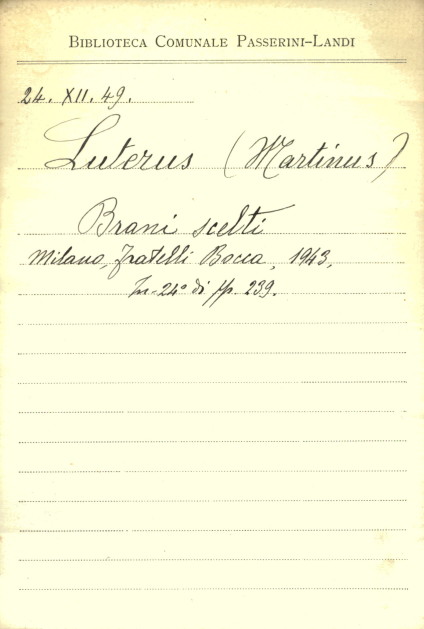 BIBLIOTECA COMUNALE PASSERINI-LANDI
24. XII. 49.
Luterus (Martinus)
Brani scelti
Milano, Fratelli Bocca, 1943,
In-24° di pp. 239.